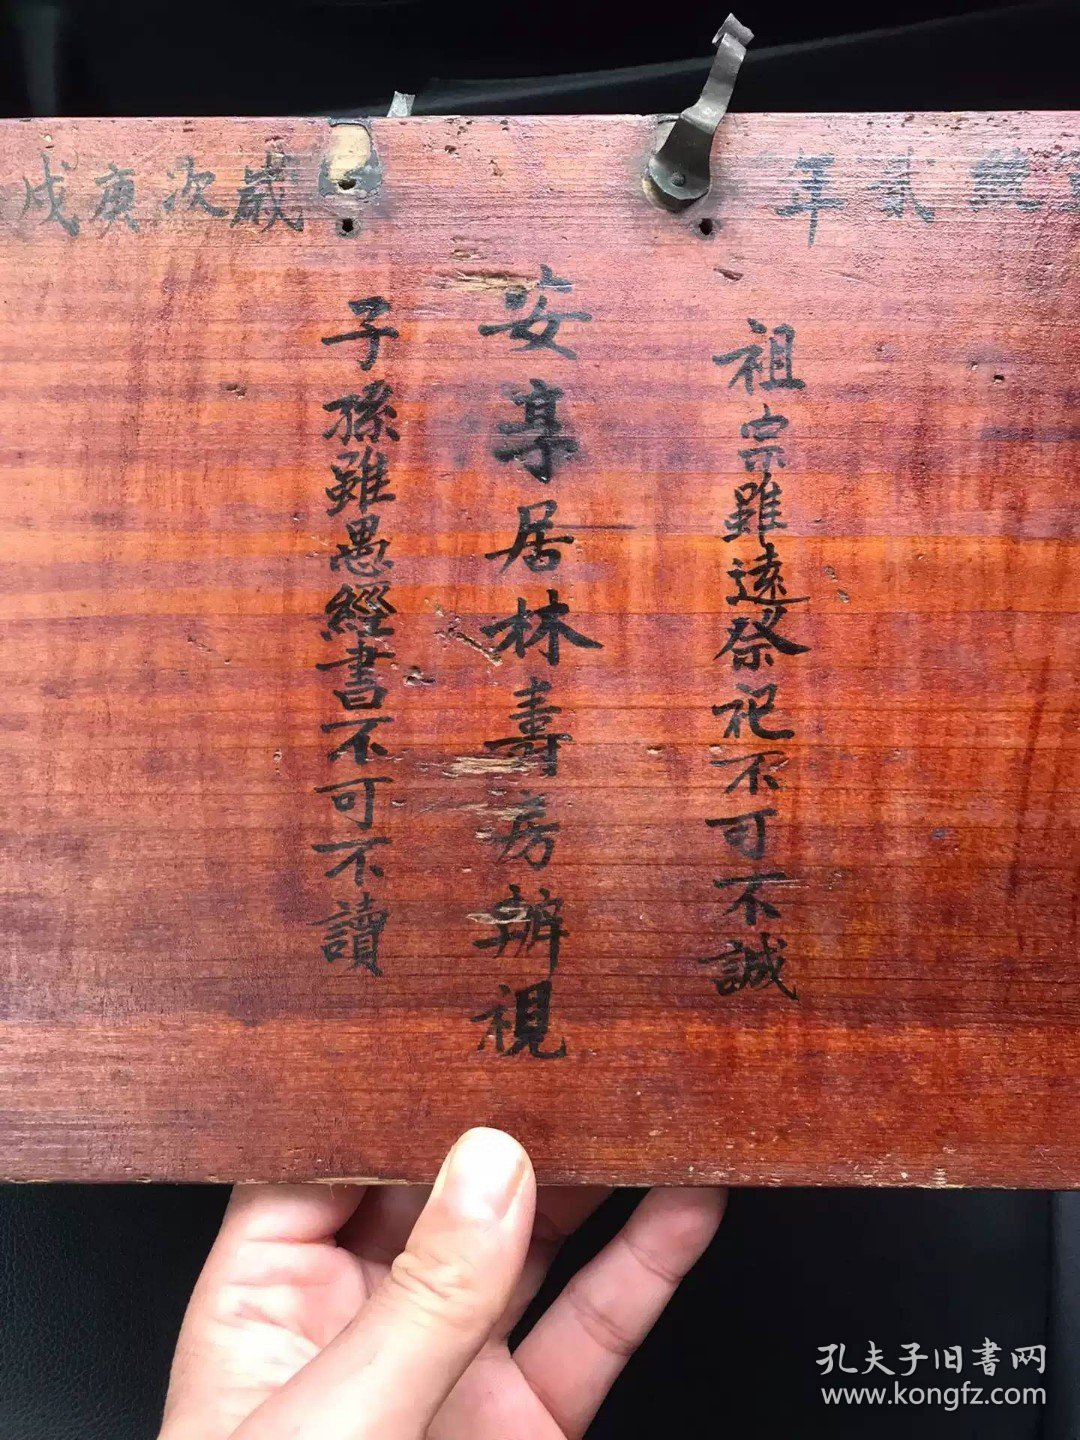 統貳年
歲次庚戌
祖宗雖遠祭祀不可不誠
安享居林壽房辦視
子孫雖愚經書不可不讀
孔夫子旧書网
www.kongfz.com